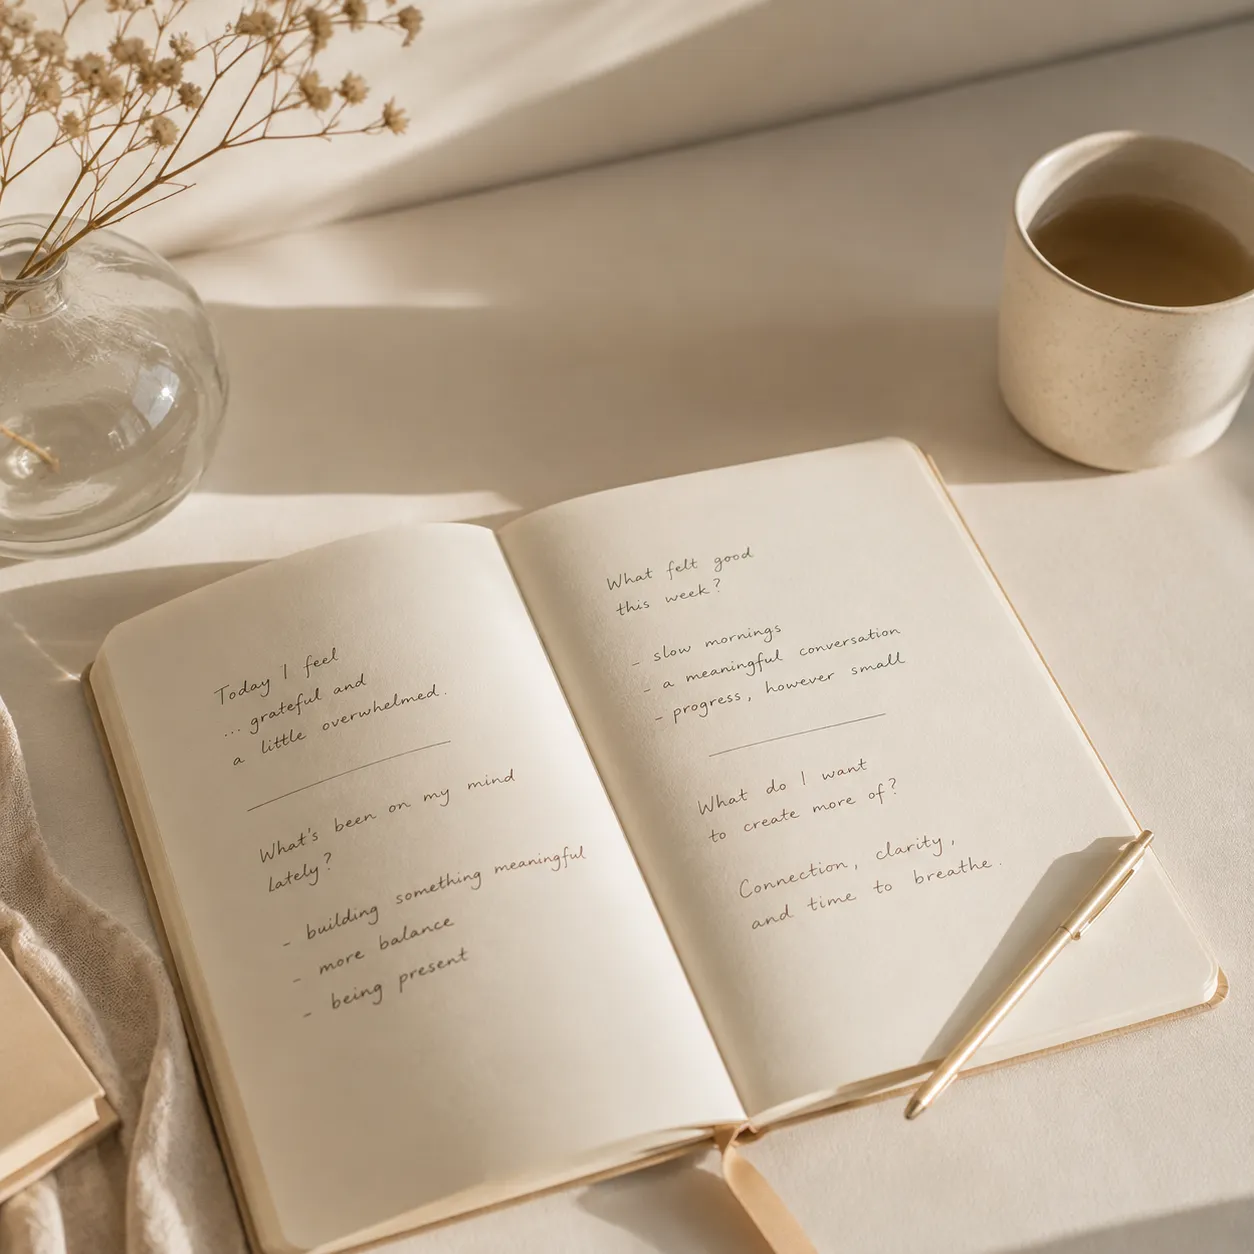 Today I feel
... grateful and
a little overwhelmed.
What's been on my mind
lately?
- building something meaningful
- more balance
- being present
What felt good
this week?
- slow mornings
- a meaningful conversation
- progress, however small
What do I want
to create more of?
Connection, clarity,
and time to breathe.